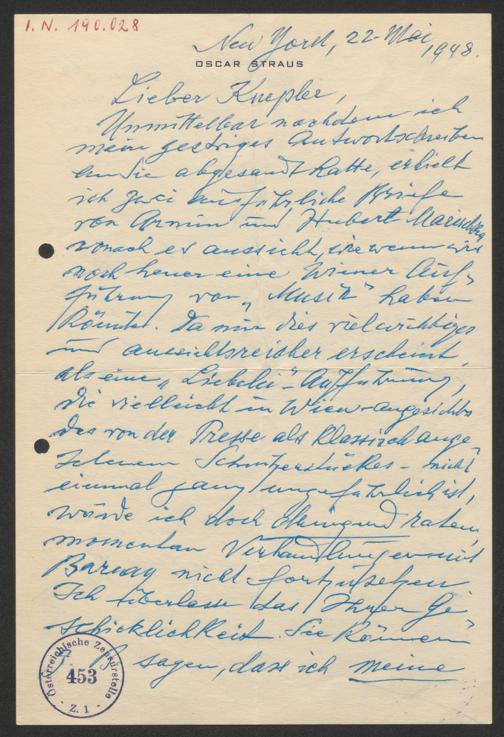 I. N. 190.028
New York, 22. Mai 1948.
OSCAR STRAUS
Lieber Knepler,
Unmittelbar nachdem ich
mein gestriges Antwortschreiben
an Sie abgesandt hatte, erhielt
ich zwei ausführliche Briefe
von Armin und Hubert Marischka,
wonach es aussieht, wie wenn wir
noch heuer eine Wiener Auf-
führung von „Musik" haben
könnten. Da mir dies viel wichtiger
und aussichtsreicher erscheint,
als eine „Liebelei"-Aufführung,
die vielleicht in Wien - angesichts
des von der Presse als klassisch ange
sehenen Schnitzlerstückes - nicht
einmal ganz ungefährlich ist,
würde ich doch dringend raten,
momentan Verhandlungen mit
nicht fortzusetzen
Ich überlasse das Ihrer Ge
schicklichkeit. Sie können
sagen, dass ich meine
Österreichische Zensurstelle
453
Z. 1